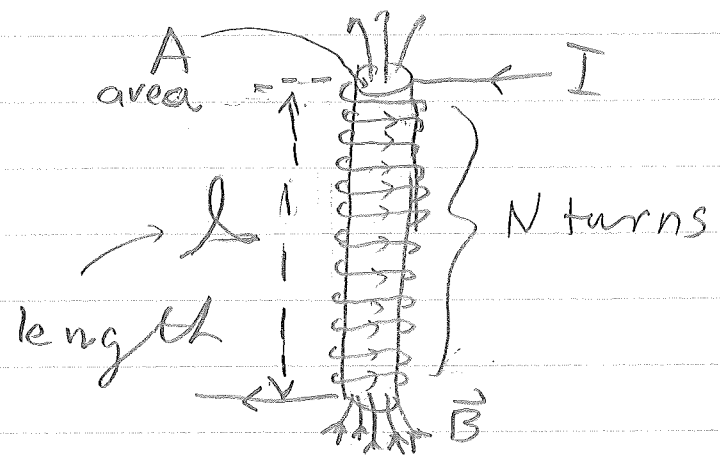 A
area
I
N turns
l
length
B⃗